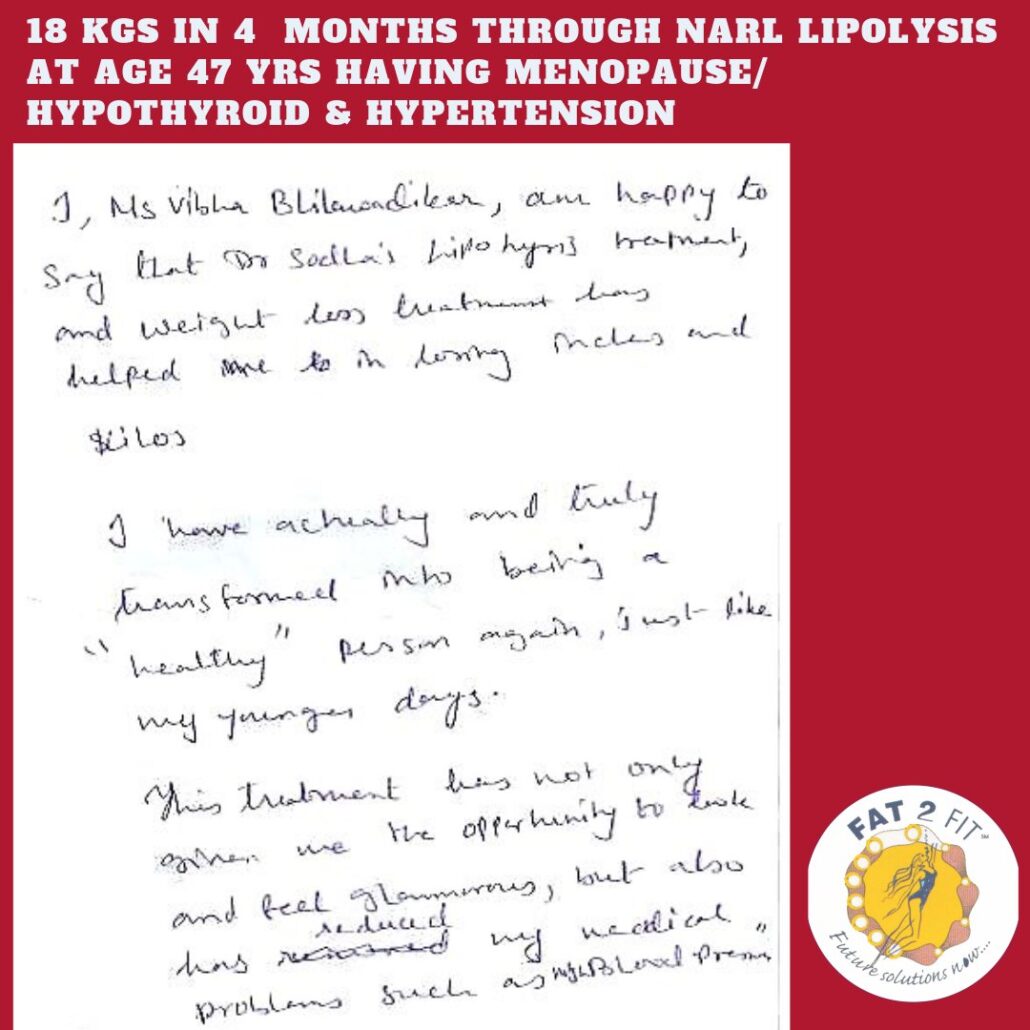 18 KGS IN 4 MONTHS THROUGH NARL LIPOLYSIS
AT AGE 47 YRS HAVING MENOPAUSE/
HYPOTHYROID & HYPERTENSION
I, Ms Vibha Bhilawadikar, am happy to
say that Dr Sodha's Lipolysis treatment,
and weight loss treatment has
helped me to in losing inches and
kilos
I have actually and truly
transformed into being a
"healthy" person again, just like
my younger days.
This treatment has not only
given me the opportunity to look
and feel glamorous, but also
reduced
has my medical
problems such as high Blood Pressure
FAT 2 FIT℠
Future solutions now...